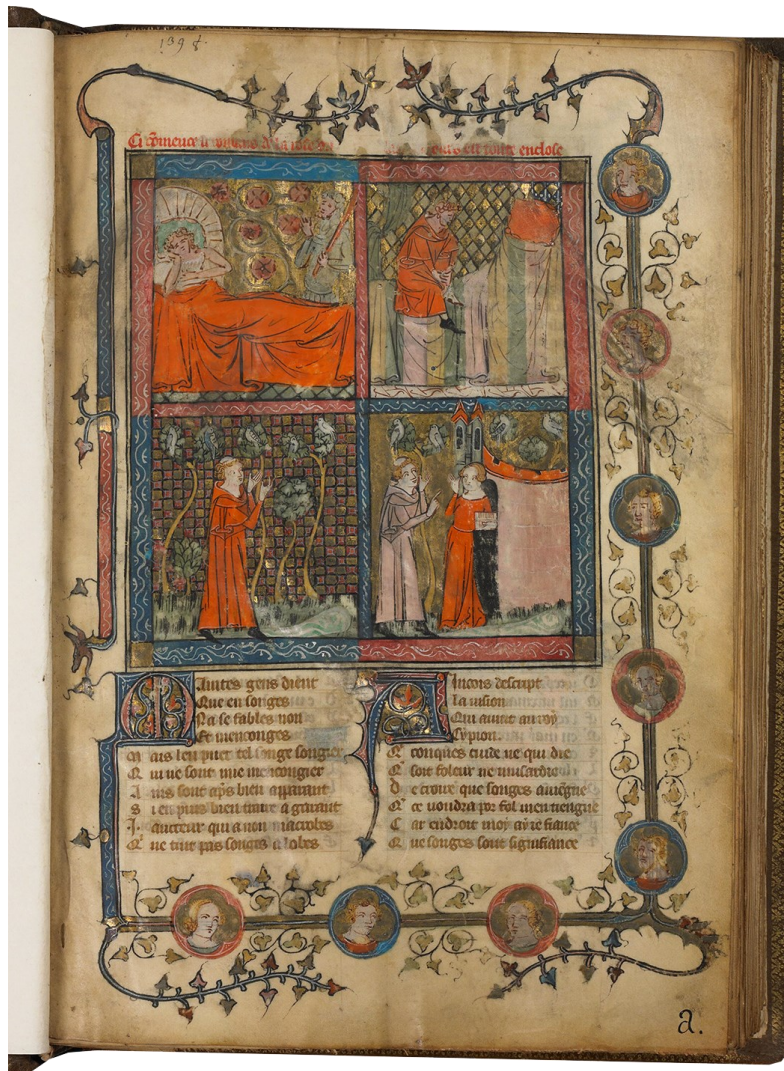 189
Ci comence li romans de la rose ou lart damours est toute enclose
Maintes gens dient
Que en songes
Na se fables non
Et menconges
Mais len puet tel songe songier
Qui ne sont mie mencongier
Ains sont aps bien apparant
Si en puis bien traire a garant
I. aucteur qui a non macrobes
Qui ne tint pas songes a lobes
Aincois descript
La uision
Qui auint au roy
Cypion.
Quiconques cuide ne qui die
Que soit foleur ne musardie
De croire que songes auiegne
Qui ce uoudra por fol men tiengne
Car endroit moy ay ie fiance
Que songes sont signifiance
a.